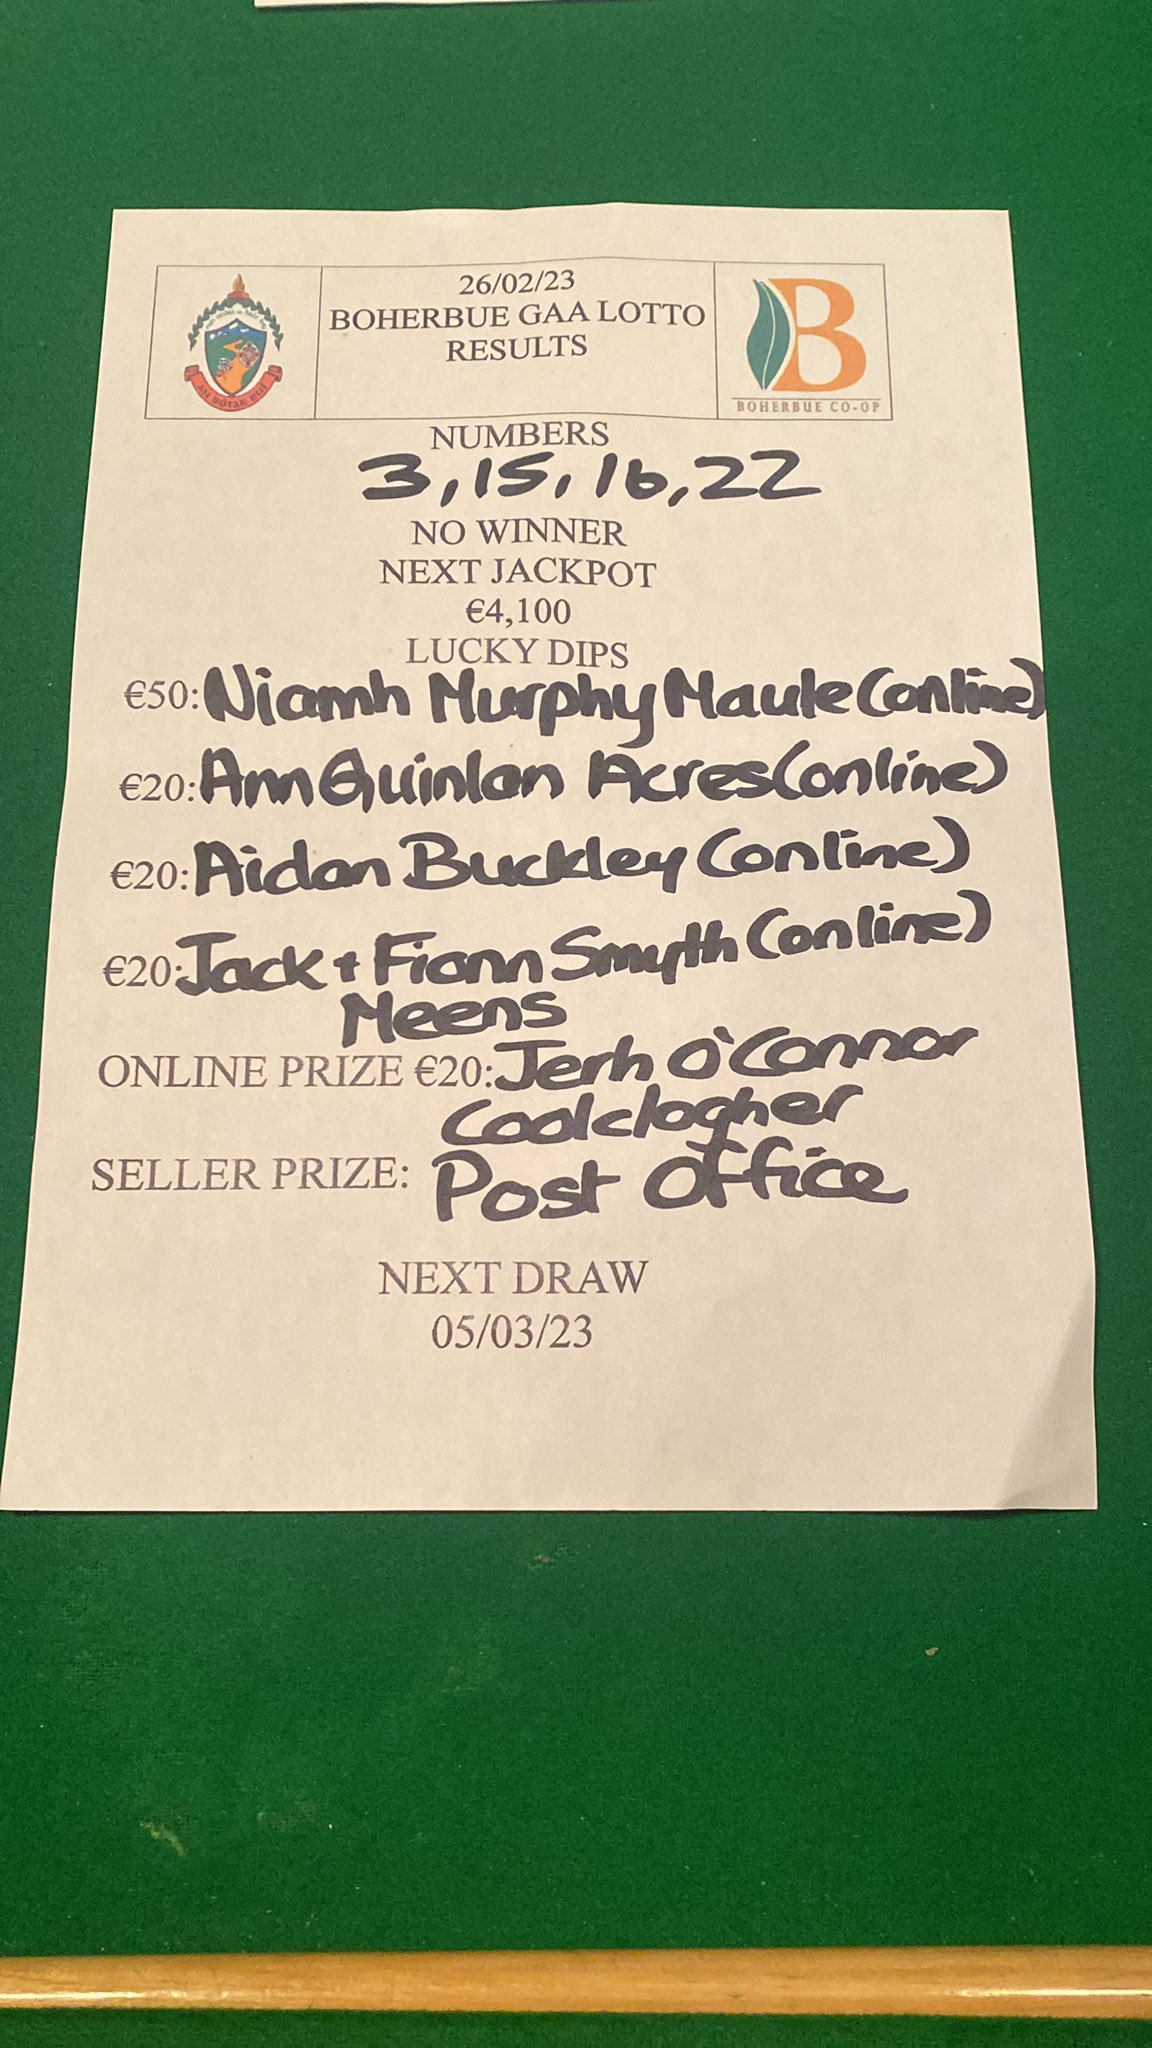 26/02/23
BOHERBUE GAA LOTTO
RESULTS
AN BÓTHAR BUÍ
BOHERBUE CO-OP
NUMBERS
3, 15, 16, 22
NO WINNER
NEXT JACKPOT
€4,100
LUCKY DIPS
€50: Niamh Murphy Maule (online)
€20: Ann Quinlan Acres (online)
€20: Aidan Buckley (online)
€20: Jack + Fionn Smyth (online)
Meens
ONLINE PRIZE €20: Jerh O'Connor
Coolclogher
SELLER PRIZE: Post Office
NEXT DRAW
05/03/23